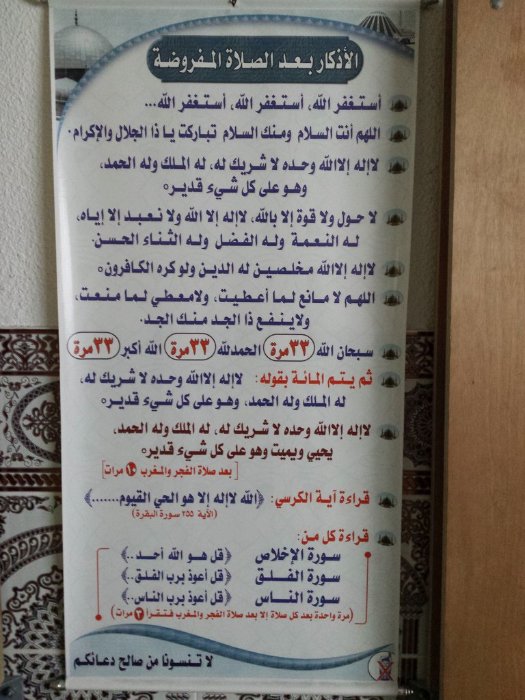 الأذكار بعد الصلاة المفروضة
أستغفر الله، أستغفر الله، أستغفر الله...
اللهم أنت السلام ومنك السلام تباركت يا ذا الجلال والإكرام.
لاإله إلاالله وحده لا شريك له، له الملك وله الحمد،
وهو على كل شيء قدير
لا حول ولا قوة إلا بالله، لاإله إلا الله ولا نعبد إلا إياه،
له النعمة وله الفضل وله الثناء الحسن.
لاإله إلاالله مخلصين له الدين ولو كره الكافرون
اللهم لا مانع لما أعطيت، ولامعطي لما منعت،
ولاينفع ذا الجد منك الجد.
سبحان الله ٣٣ مرة الحمدلله ٣٣ مرة الله أكبر ٣٣ مرة
ثم يتم المائة بقوله: لاإله إلاالله وحده لا شريك له،
له الملك وله الحمد، وهو على كل شيء قدير
لاإله إلاالله وحده لا شريك له، له الملك وله الحمد،
يحيي ويميت وهو على كل شيء قدير
[بعد صلاة الفجر والمغرب ١٠ مرات]
قراءة آية الكرسي: ﴿الله لاإله إلا هو الحي القيوم.......﴾
(الآية ٢٥٥ سورة البقرة)
قراءة كل من:
سورة الإخلاص ﴿قل هو الله أحد..﴾
سورة الفلق ﴿قل أعوذ برب الفلق..﴾
سورة الناس ﴿قل أعوذ برب الناس..﴾
(مرة واحدة بعد كل صلاة إلا بعد صلاة الفجر والمغرب فتقرأ ٣ مرات)
لا تنسونا من صالح دعائكم